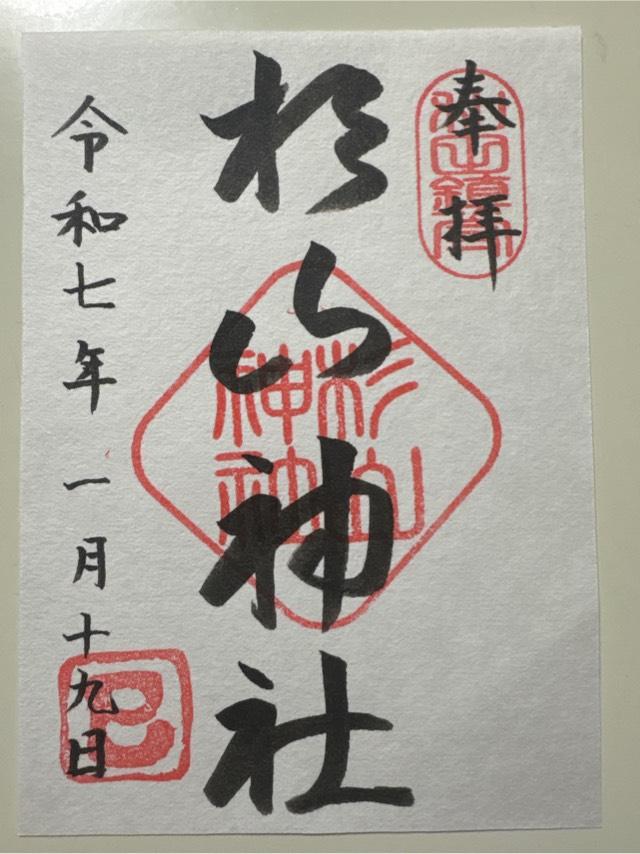 奉拝
杉山神社
杉山神社
令和七年一月十九日
巳